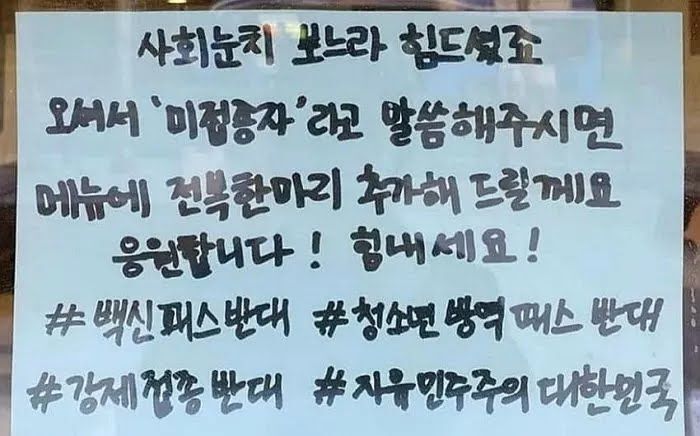 사회눈치 보느라 힘드셨죠
오셔서 '미접종자'라고 말씀해주시면
메뉴에 전복한마리 추가해 드릴께요
응원합니다! 힘내세요!
#백신패스반대 #청소년 방역패스 반대
#강제접종반대 #자유민주주의 대한민국